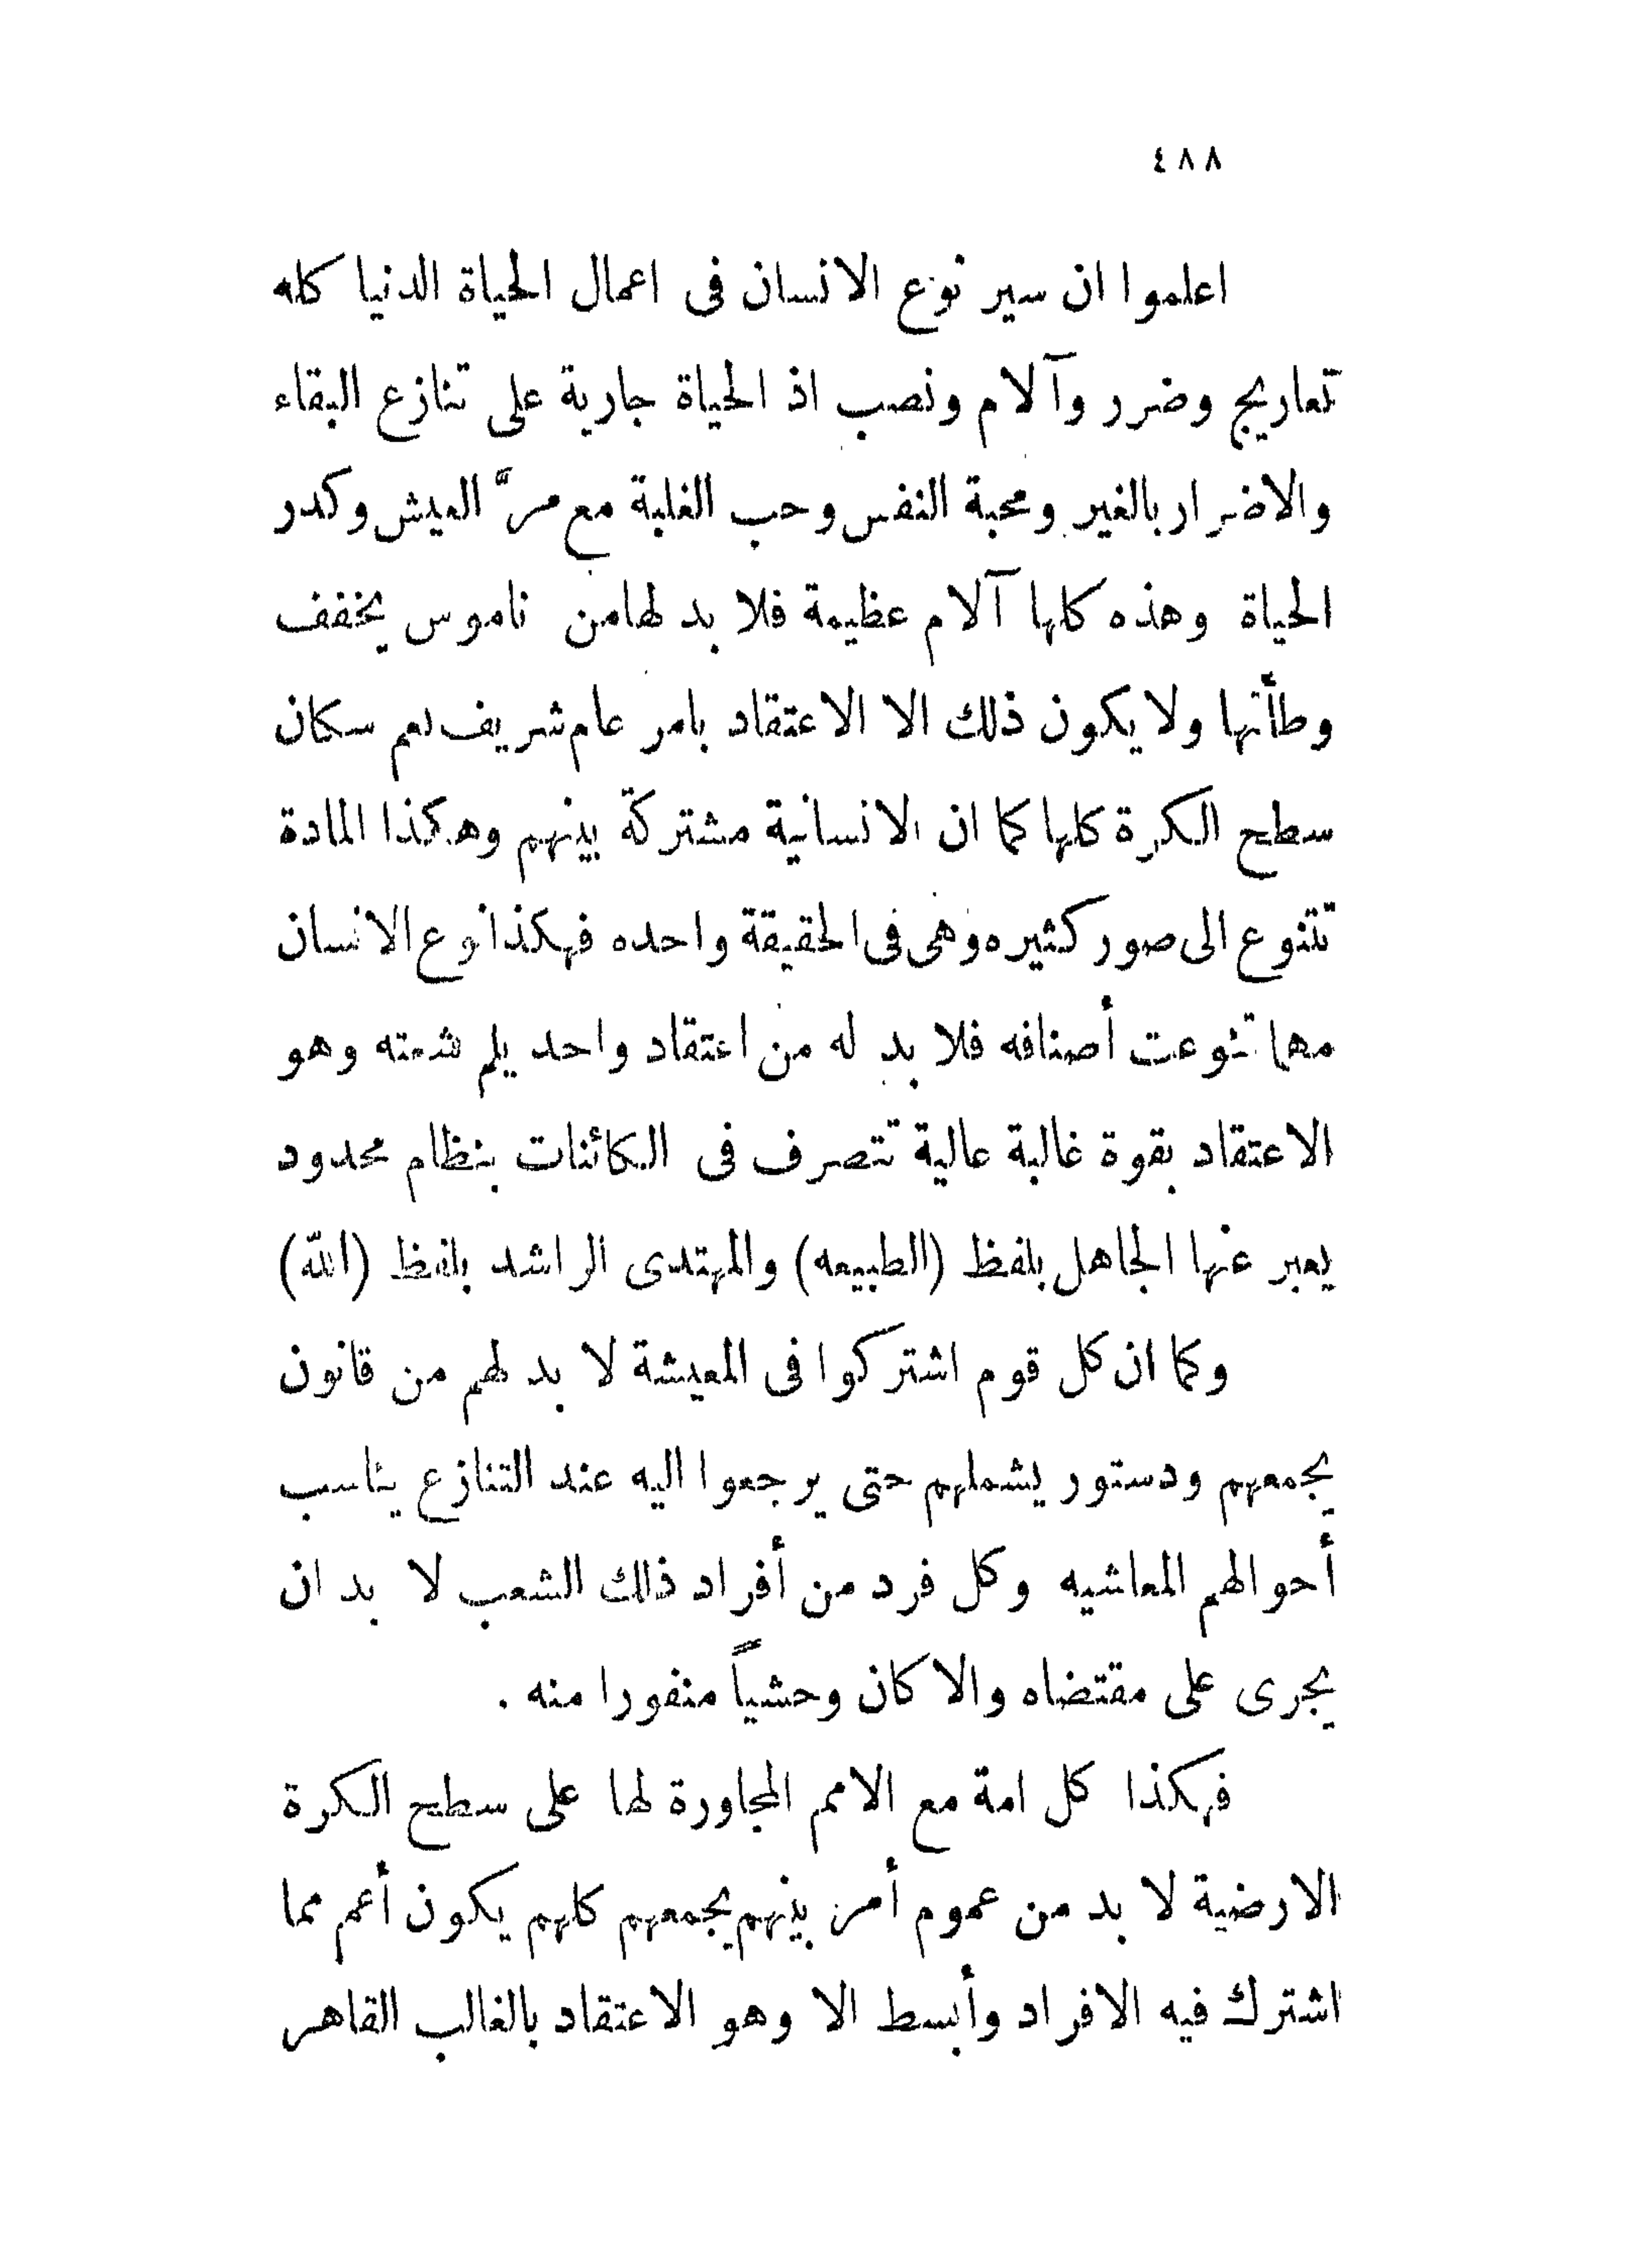 ٤٨٨
اعلموا ان سير نوع الانسان فى اعمال الحياة الدنيا كله
تعاريج وضرر وآلام ونصب اذ الحياة جارية على تنازع البقاء
والاضرار بالغير ومحبة النفس وحب الغلبة مع مرَّ العيش وكدر
الحياة وهذه كلها آلام عظيمة فلا بد لها من ناموس يخفف
وطأتها ولا يكون ذلك الا الاعتقاد بامر عام شريف يعم سكان
سطح الكرة كلها كما ان الانسانية مشتركة بينهم وهكذا المادة
تتنوع الى صور كثيره وهى فى الحقيقة واحده فهكذا نوع الانسان
مهما تنوعت أصنافه فلا بد له من اعتقاد واحد يلم شعته وهو
الاعتقاد بقوة غالبة عالية تتصرف فى الكائنات بنظام محدود
يعبر عنها الجاهل بلفظ (الطبيعه) والمهتدى الراشد بلفظ (الله)
وكما ان كل قوم اشتركوا فى المعيشة لا بد لهم من قانون
يجمعهم ودستور يشملهم حتى يرجعوا اليه عند التنازع يناسب
أحوالهم المعاشيه وكل فرد من أفراد ذلك الشعب لا بد ان
يجرى على مقتضاه والا كان وحشياً منفورا منه .
فهكذا كل امة مع الامم المجاورة لها على سطح الكرة
الارضية لا بد من عموم أمر بينهم يجمعهم كلهم يكون أعم مما
اشترك فيه الافراد وأبسط الا وهو الاعتقاد بالغالب القاهر